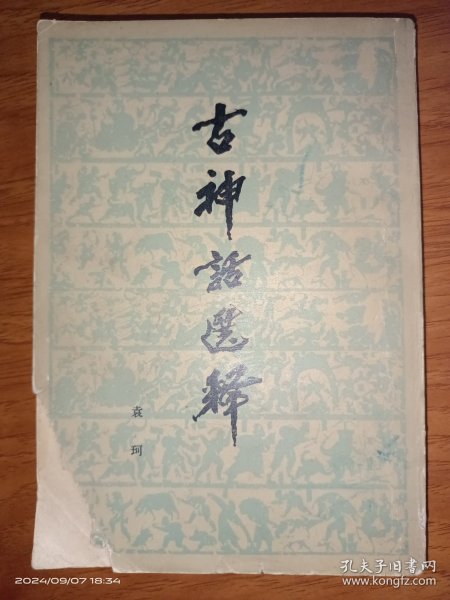 古神話選釋
袁珂
2024/09/07 18:34
孔夫子旧书网
www.kongfz.com